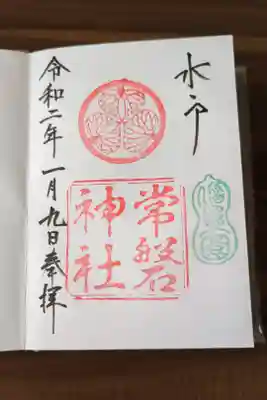 水戸
常磐
神社
令和二年一月九日奉拝